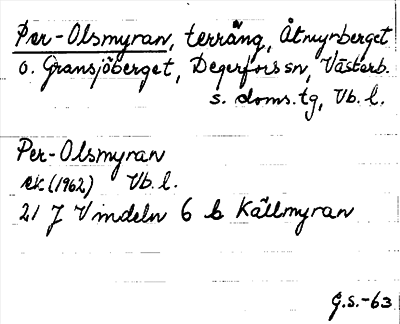 Per-Olsmyran, terräng, Åtmyrberget
o. Gransjöberget, Degerfors sn, Västerb.
s. doms.tg, Vb. l.
Per-Olsmyran
ek (1962) Vb. l.
21 J Vindeln 6 b Källmyran
G.S.-63